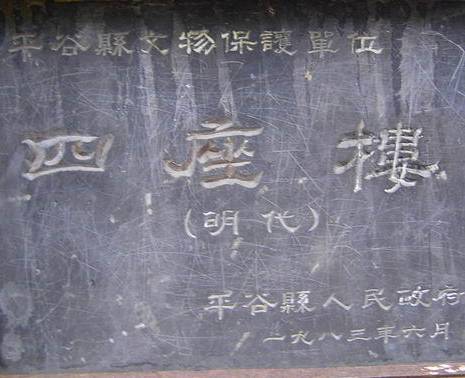 平谷縣文物保護單位
四座樓
(明代)
平谷縣人民政府
一九八三年六月